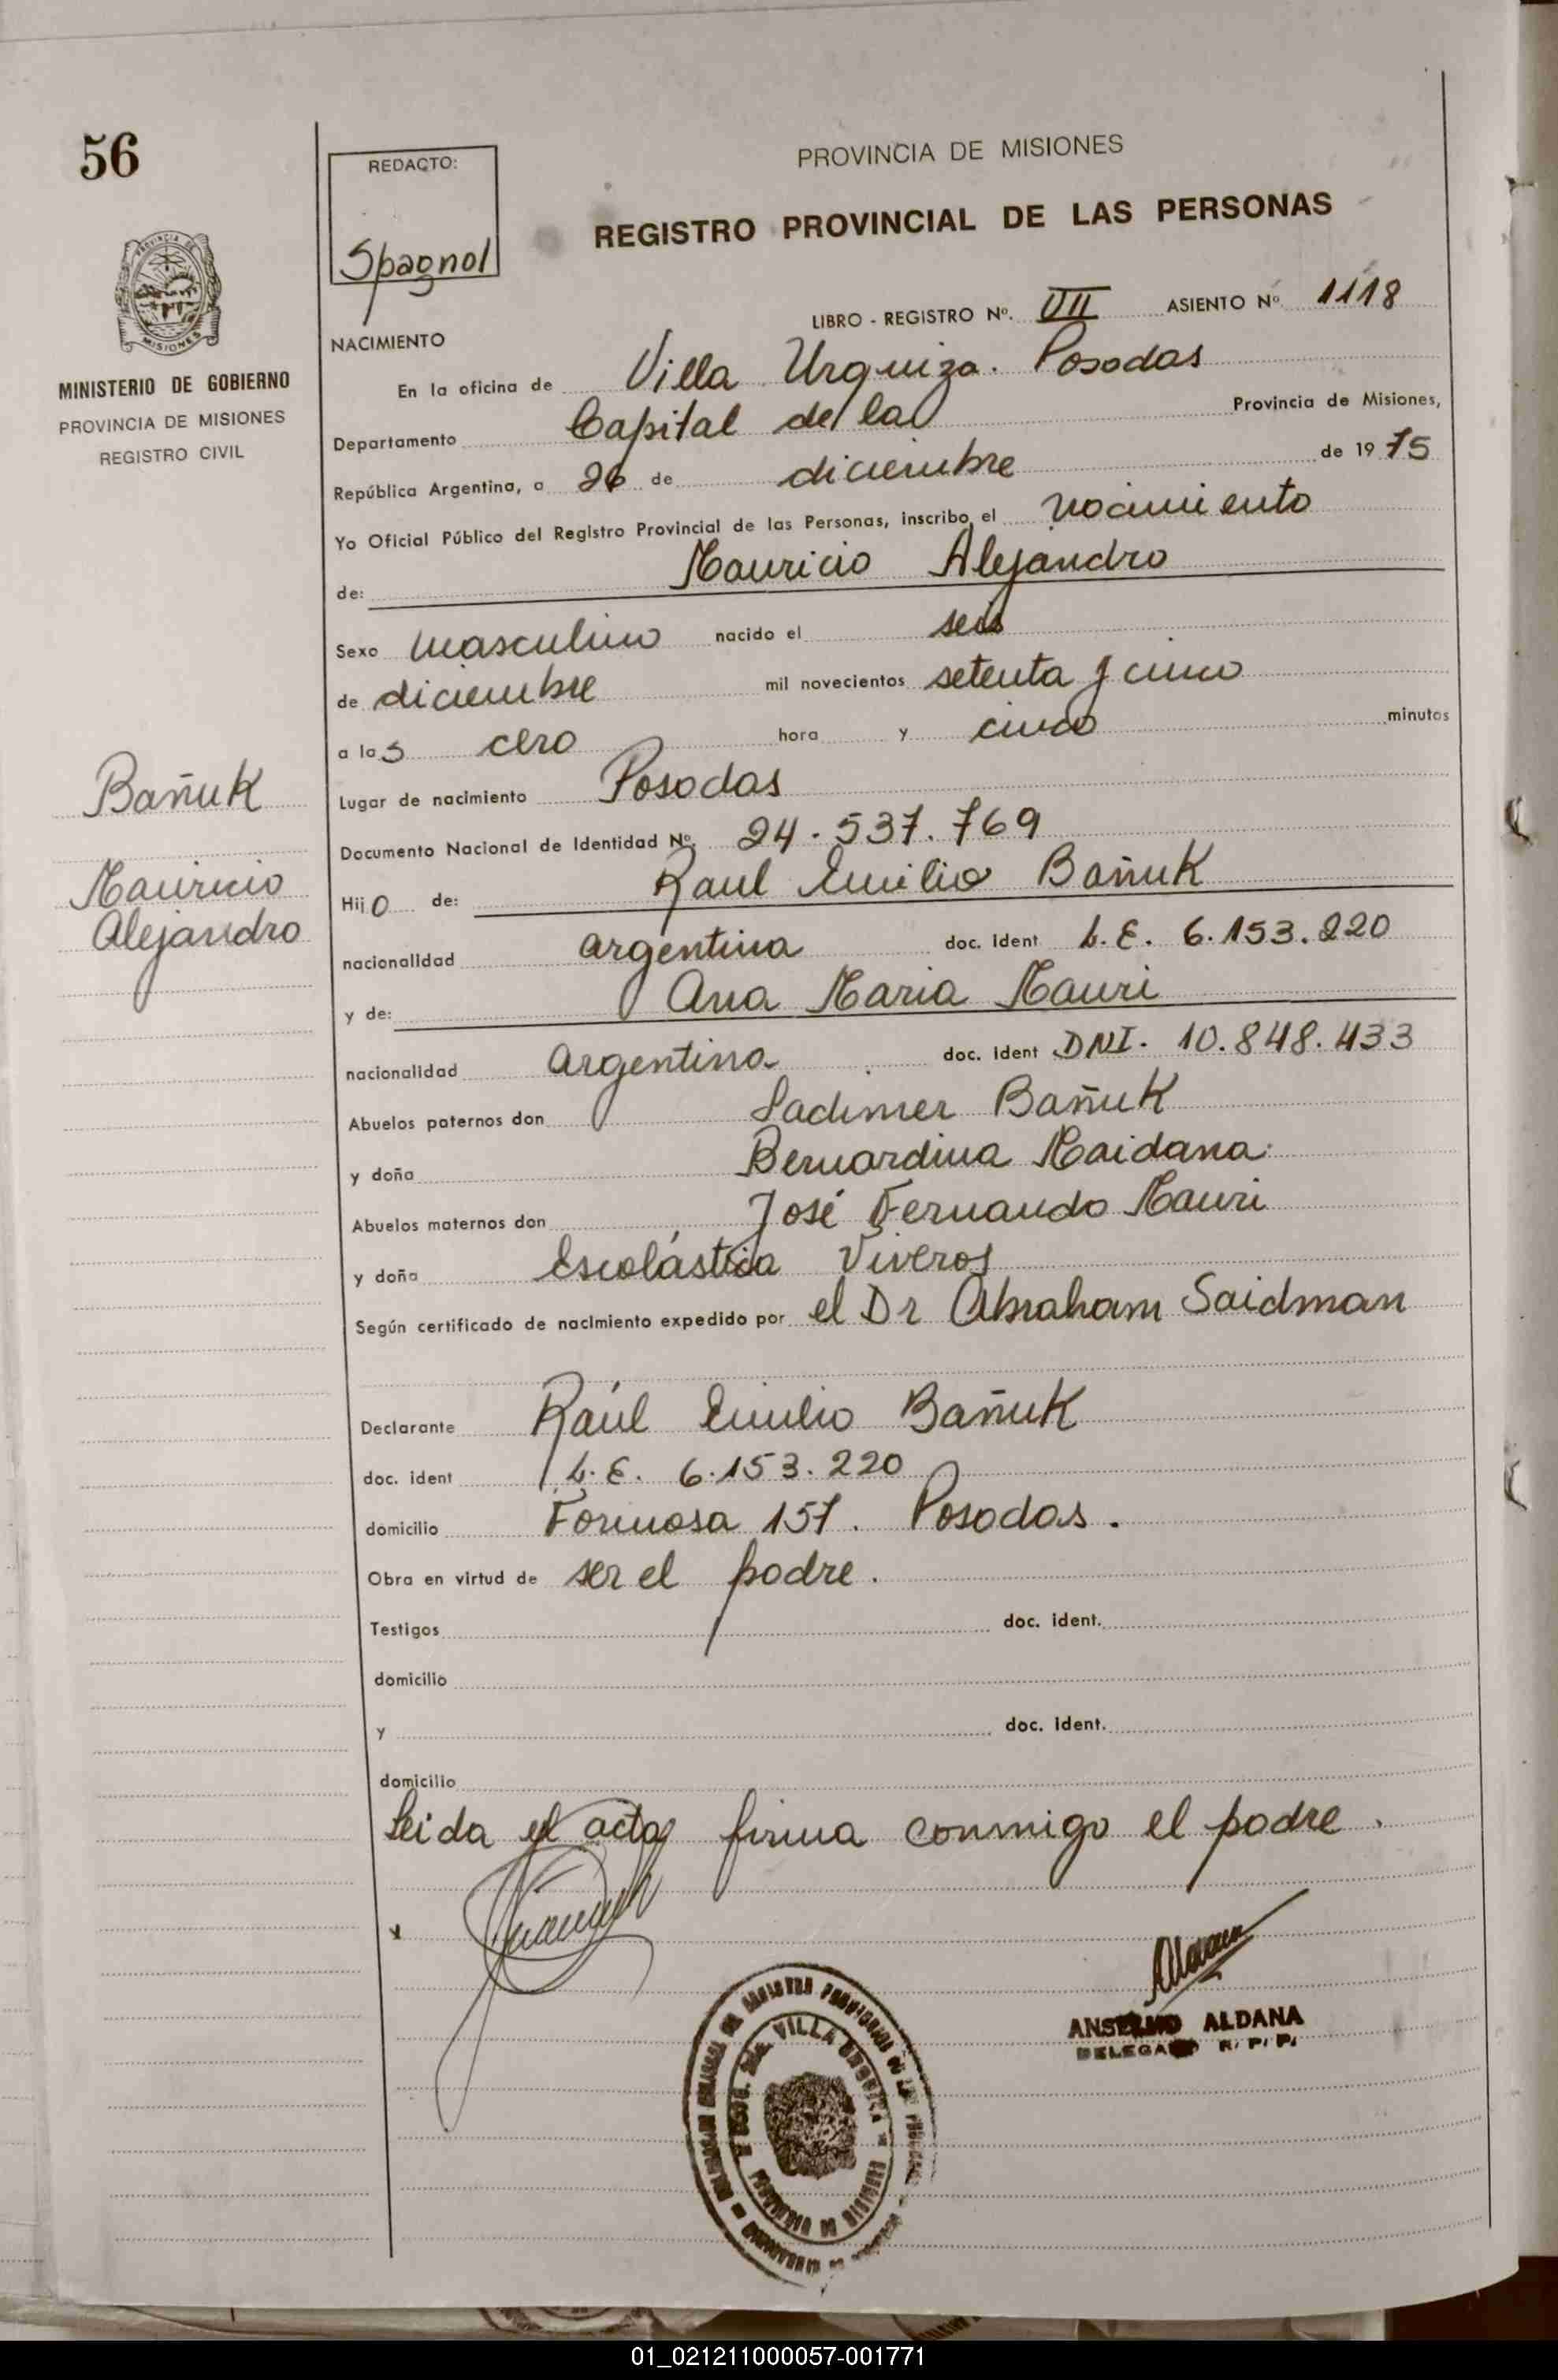 56
REDACTO:
Spagnol
PROVINCIA DE MISIONES
REGISTRO PROVINCIAL DE LAS PERSONAS
LIBRO - REGISTRO Nº. VII ASIENTO Nº 1118
MISIONES
MINISTERIO DE GOBIERNO
PROVINCIA DE MISIONES
REGISTRO CIVIL
NACIMIENTO
En la oficina de Villa Urquiza. Posadas
Departamento Capital de la Provincia de Misiones,
República Argentina, a 26 de diciembre de 1975
Yo Oficial Público del Registro Provincial de las Personas, inscribo el nacimiento
de: Mauricio Alejandro
Sexo masculino nacido el seis
de diciembre mil novecientos setenta y cinco
a las cero hora y cinco minutos
Bañuk
Mauricio
Alejandro
Lugar de nacimiento Posadas
Documento Nacional de Identidad Nº. 24.537.769
Hijo de: Raul Emilio Bañuk
nacionalidad argentina doc. ident L.E. 6.153.220
y de: Ana Maria Mauri
nacionalidad argentina doc. ident DNI. 10.848.433
Abuelos paternos don Ladimer Bañuk
y doña Bernardina Maidana.
Abuelos maternos don José Fernando Mauri
y doña Escolástica Viveros
Según certificado de nacimiento expedido por el Dr Abraham Saidman
Declarante Raúl Emilio Bañuk
doc. ident L.E. 6.153.220
domicilio Formosa 157. Posadas.
Obra en virtud de ser el padre.
Testigos doc. ident.
domicilio
y doc. ident.
domicilio
Leida el acta firma conmigo el padre.
ANSELMO ALDANA
DELEGADO R. P. P.
VILLA URQUIZA
PROVINCIA DE MISIONES
01_021211000057-001771